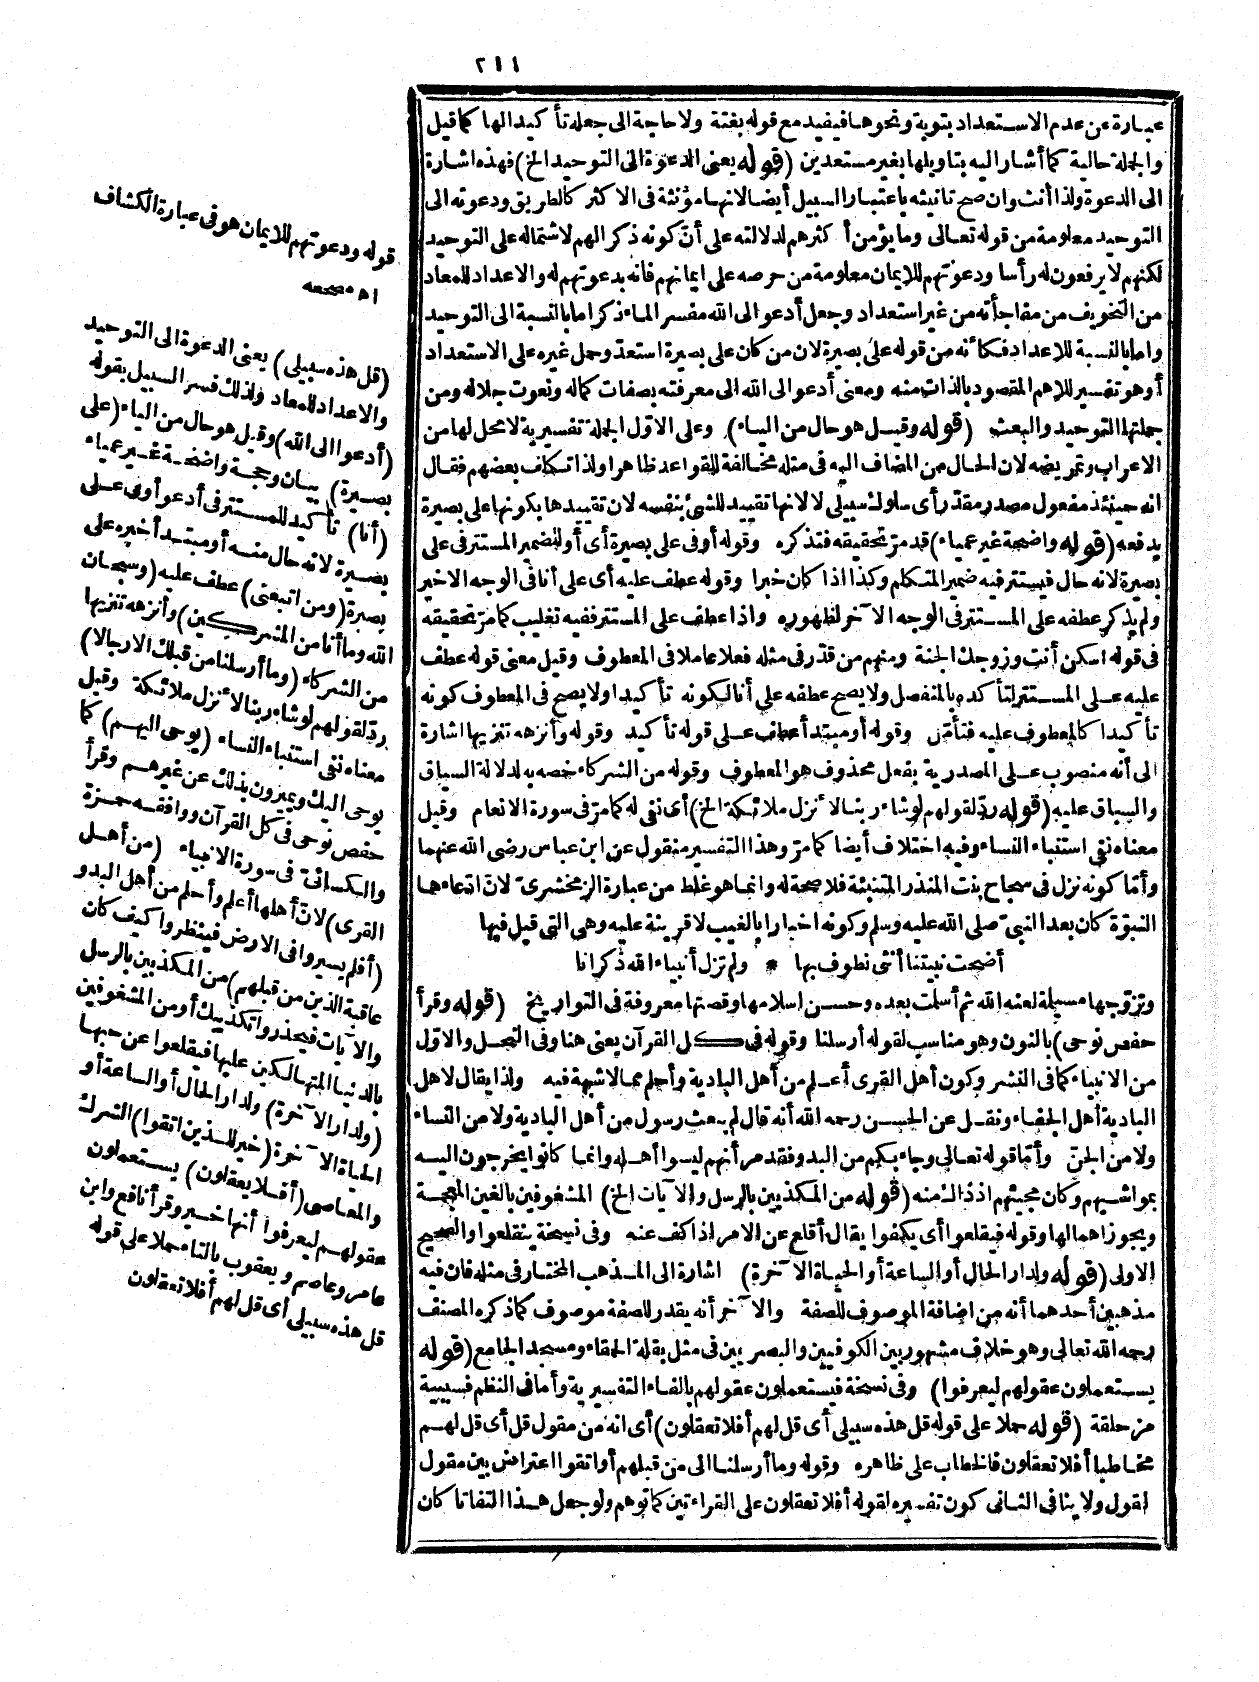 ٢١١
عبارة عن عدم الاستعداد بتوبة ونحوها فيفيد مع قوله بغتة ولا حاجة الى جعله تأكيدا لها كما قيل
والجملة حالية كما أشار اليه بتاويلها بغير مستعدين (قوله يعني الدعوة الى التوحيد الخ) فهذه اشارة
الى الدعوة ولذا أنث وان صح تانيثه باعتبار السبيل أيضا لانها مؤنثة فى الاكثر كالطريق ودعوته الى
التوحيد معلومة من قوله تعالى وما يؤمن أكثرهم لدلالته على أنّ كونه ذكرا لهم لاشتماله على التوحيد
لكنهم لا يرفعون له رأسا ودعوتهم للايمان معلومة من حرصه على ايمانهم فانه بدعوتهم له والاعداد للمعاد
من التخويف من مفاجأته من غير استعداد وجعل أدعو الى الله مفسر الماء ذكر اما بالنسبة الى التوحيد
واما بالنسبة للاعداد فكأنه من قوله على بصيرة لان من كان على بصيرة استعد وحمل غيره على الاستعداد
أو هو تفسير للاهم المقصود بالذات منه ومعنى أدعو الى الله الى معرفته بصفات كماله ونعوت جلاله ومن
جملتها التوحيد والبعث (قوله وقيل هو حال من الياء) وعلى الاوّل الجملة تفسيرية لا محل لها من
الاعراب وتمريضه لان الحال من المضاف اليه فى مثله مخالفة للقواعد ظاهرا ولذا تكلف بعضهم فقال
انه حينئذ مفعول مصدر مقدر أى سلوك سبيلى لا لانها تقييد للشئ بنفسه لان تقييدها بكونها على بصيرة
يدفعه (قوله واضحة غير عمياء) قد مرّ تحقيقه فتذكره وقوله أو فى على بصيرة أى أو للضمير المستتر فى على
بصيرة لانه حال فيستتر فيه ضمير المتكلم وكذا اذا كان خبرا وقوله عطف عليه أى على أنا فى الوجه الاخير
ولم يذكر عطفه على المستتر فى الوجه الآخر لظهوره واذا عطف على المستتر ففيه تغليب كما مرّ تحقيقه
فى قوله اسكن أنت وزوجك الجنة ومنهم من قدّر فى مثله فعلا عاملا فى المعطوف وقيل معنى قوله عطف
عليه على المستتر لتأكده بالمنفصل ولا يصح عطفه على أنا لكونه تأكيدا ولا يصح فى المعطوف كونه
تأكيدا كالمعطوف عليه فتأمّل وقوله أو مبتدأ عطف على قوله تأكيد وقوله وأنزهه تنزيها اشارة
الى أنه منصوب على المصدرية بفعل محذوف هو المعطوف وقوله من الشركاء خصه به لدلالة السياق
والسباق عليه (قوله ردّ لقولهم لو شاء ربنا لانزل ملائكة الخ) أى نفى له كما مرّ فى سورة الانعام وقيل
معناه نفى استنباء النساء وفيه اختلاف أيضا كما مرّ وهذا التفسير منقول عن ابن عباس رضى الله عنهما
وأمّا كونه نزل فى سجاح بنت المنذر المتنبئة فلا صحة له وانما هو غلط من عبارة الزمخشرى لانّ ادّعاءها
النبوّة كان بعد النبىّ صلى الله عليه وسلم وكونه اخبارا بالغيب لا قرينة عليه وهى التى قيل فيها
أضحت نبيتنا أنثى نطوف بها * ولم تزل أنبياء الله ذكرانا
وتزوّجها مسيلمة لعنه الله ثم أسلمت بعده وحسن اسلامها وقصتها معروفة فى التواريخ (قوله وقرأ
حفص نوحى) بالنون وهو مناسب لقوله أرسلنا وقوله فى كل القرآن يعنى هنا وفى النحل والاوّل
من الانبياء كما فى النشر وكون أهل القرى أعلم من أهل البادية وأحلم مما لا شبهة فيه ولذا يقال لاهل
البادية أهل الجفاء ونقل عن الحسن رحمه الله أنه قال لم يبعث رسول من أهل البادية ولا من النساء
ولا من الجنّ وأمّا قوله تعالى وجاء بكم من البدو فقد مر أنهم ليسوا أهله وانما كانوا يخرجون اليه
بمواشيهم وكان مجيئهم اذ ذاك منه (قوله من المكذبين بالرسل والآيات الخ) المشغوفين بالغين المعجمة
ويجوز اهمالها وقوله فيقلعوا أى يكفوا يقال أقلع عن الامر اذا كف عنه وفى نسخة ينقلعوا والصحيح
الاولى (قوله ولدار الحال أو الساعة أو الحياة الآخرة) اشارة الى المذهب المختار فى مثله فان فيه
مذهبين أحدهما أنه من اضافة الموصوف للصفة والآخر أنه يقدر للصفة موصوف كما ذكره المصنف
رحمه الله تعالى وهو خلاف مشهور بين الكوفيين والبصريين فى مثل بقلة الحمقاء ومسجد الجامع (قوله
يستعملون عقولهم ليعرفوا) وفى نسخة فيستعملون عقولهم بالفاء التفسيرية وأما فى النظم فسببية
مزحلقة (قوله حملا على قوله قل هذه سبيلى أى قل لهم أفلا تعقلون) أى انه من مقول قل أى قل لهم
مخاطبا أفلا تعقلون فالخطاب على ظاهره وقوله وما أرسلنا الى من قبلهم أو اتقوا اعتراض بين مقول
القول ولا ينافى الثانى كون تفسيره لقوله أفلا تعقلون على القراءتين كما توهم ولو جعل هذا التفاتا كان
قوله ودعوتهم للايمان هو فى عبارة الكشاف
اه مصححه
(قل هذه سبيلى) يعنى الدعوة الى التوحيد
والاعداد للمعاد ولذلك فسر السبيل بقوله
(أدعوا الى الله) وقيل هو حال من الياء (على
بصيرة) ببيان وحجة واضحة غير عمياء
(أنا) تأكيد للمستتر فى أدعو أو فى على
بصيرة لانه حال منه أو مبتدأ خبره على
بصيرة (ومن اتبعنى) عطف عليه (وسبحان
الله وما أنا من المشركين) وأنزهه تنزيها
من الشركاء (وما أرسلنا من قبلك الا رجالا)
ردّ لقولهم لو شاء ربنا لانزل ملائكة وقيل
معناه نفى استنباء النساء (يوحى اليهم) كما
يوحى اليك ويميزون بذلك عن غيرهم وقرأ
حفص نوحى فى كل القرآن ووافقه حمزة
والكسائىّ فى سورة الانبياء (من أهل
القرى) لانّ أهلها أعلم وأحلم من أهل البدو
(أفلم يسيروا فى الارض فينظروا كيف كان
عاقبة الذين من قبلهم) من المكذبين بالرسل
والآيات فيحذروا تكذيبك أو من المشغوفين
بالدنيا المتهالكين عليها فيقلعوا عن حبها
(ولدار الآخرة) ولدار الحال أو الساعة أو
الحياة الآخرة (خير للذين اتقوا) الشرك
والمعاصى (أفلا يعقلون) يستعملون
عقولهم ليعرفوا أنها خير وقرأ نافع وابن
عامر وعاصم ويعقوب بالتاء حملا على قوله
قل هذه سبيلى أى قل لهم أفلا تعقلون